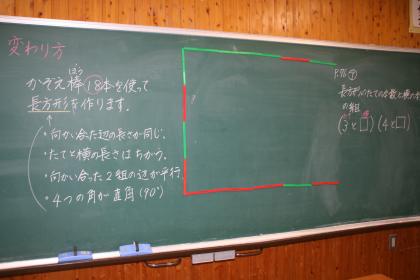 変わり方
かぞえ棒18本を使って
ぼう
長方形を作ります。
・向かい合った辺の長さが同じ。
・たてと横の長さはちがう。
・向かい合った2組の辺が平行
・4つの角が直角(90°)
P.76 ①
長方形のたての本数と横の本
の組
(3と□)(4と□)